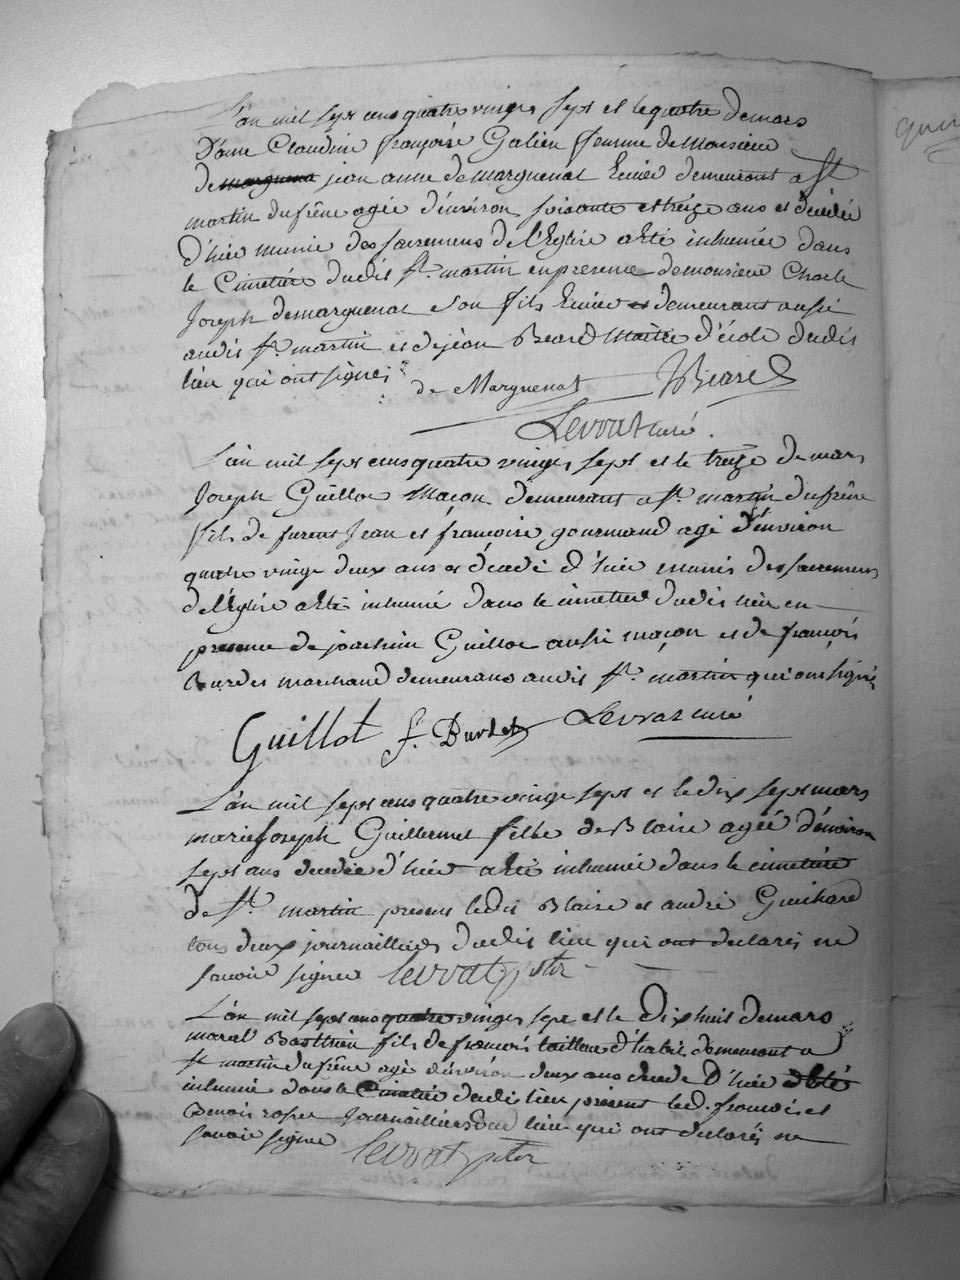 L'an mil sept cens quatre vingt sept et le quatre de mars
Dame Claudine françoise Galien femme de Monsieur
de marguenat jean anne de marguenat Ecuier demeurant a St
martin du frêne agée d'environ soixante et treize ans et décédée
d'hier munie des sacremens de l'Eglise a été inhumée dans
le Cimetière dudit St. martin en presence de monsieur Charle
Joseph de marguenat son fils Ecuier demeurant aussi
audit St. martin et de jean Beard Maitre d'école dudit
lieu qui ont signés
de Marguenat JBeard
Levrat curé.
L'an mil sept cens quatre vingt sept et le treize de mars
Joseph Guillot Maçon demeurant a St. martin du frêne
fils de furent Jean et françoise gourmand agé d'environ
quatre vingt deux ans et décedé d'hier munis des sacremens
de l'Eglise a été inhumé dans le cimetière dudit lieu en
presence de joachim Guillot aussi maçon et de françois
Burdet marchand demeurans audit St. martin qui ont signé
Guillot f. Burdet Levrat curé
L'an mil sept cens quatre vingt sept et le dix sept mars
marie Joseph Guillermet fille de Blaise agée d'environ
sept ans decedée d'hier a été inhumée dans le cimetière
de St. martin presens ledit Blaise et andré Guichard
tous deux journailliers dudit lieu qui ont declarés ne
savoir signer Levrat
L'an mil sept cens quatre vingt sept et le Dix huit de mars
fils de francois tailleur d'habit demeurant a
St martin du frêne agé d'environ deux ans decede D'hier a été
inhumé dans le Cimetière dudit lieu present led. francois et
Benoit journailliers lieu qui ont declarés ne
savoir signer Levrat